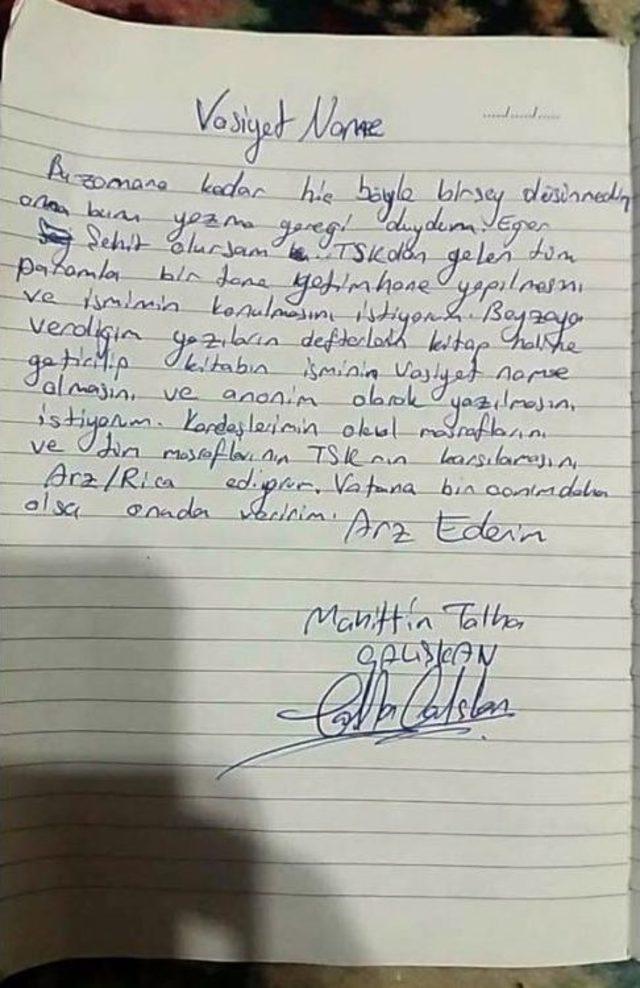 Vasiyet Name
..../..../....
Bu zamana kadar hic böyle birsey düsinmedim
ama bunu yazma geregi duydum. Eger
Sehit olursam TSKdan gelen tüm
paramla bir tane yetimhane yapılmasını
ve ismimin konulmasını istiyorum. Beyzaya
verdigim yazıların defterlerin kitap haline
getirilip kitabın isminin Vasiyet name
olmasın, ve anonim olarak yazılmasın,
istiyorum. Kardeslerimin okul masrafların,
ve tüm masraflarının TSK nın karsılamasın,
Arz/Rica ediyorum. Vatana bin canım daha
olsa onuda veririm. Arz Ederim
Muhittin Talha
ÇALISKAN